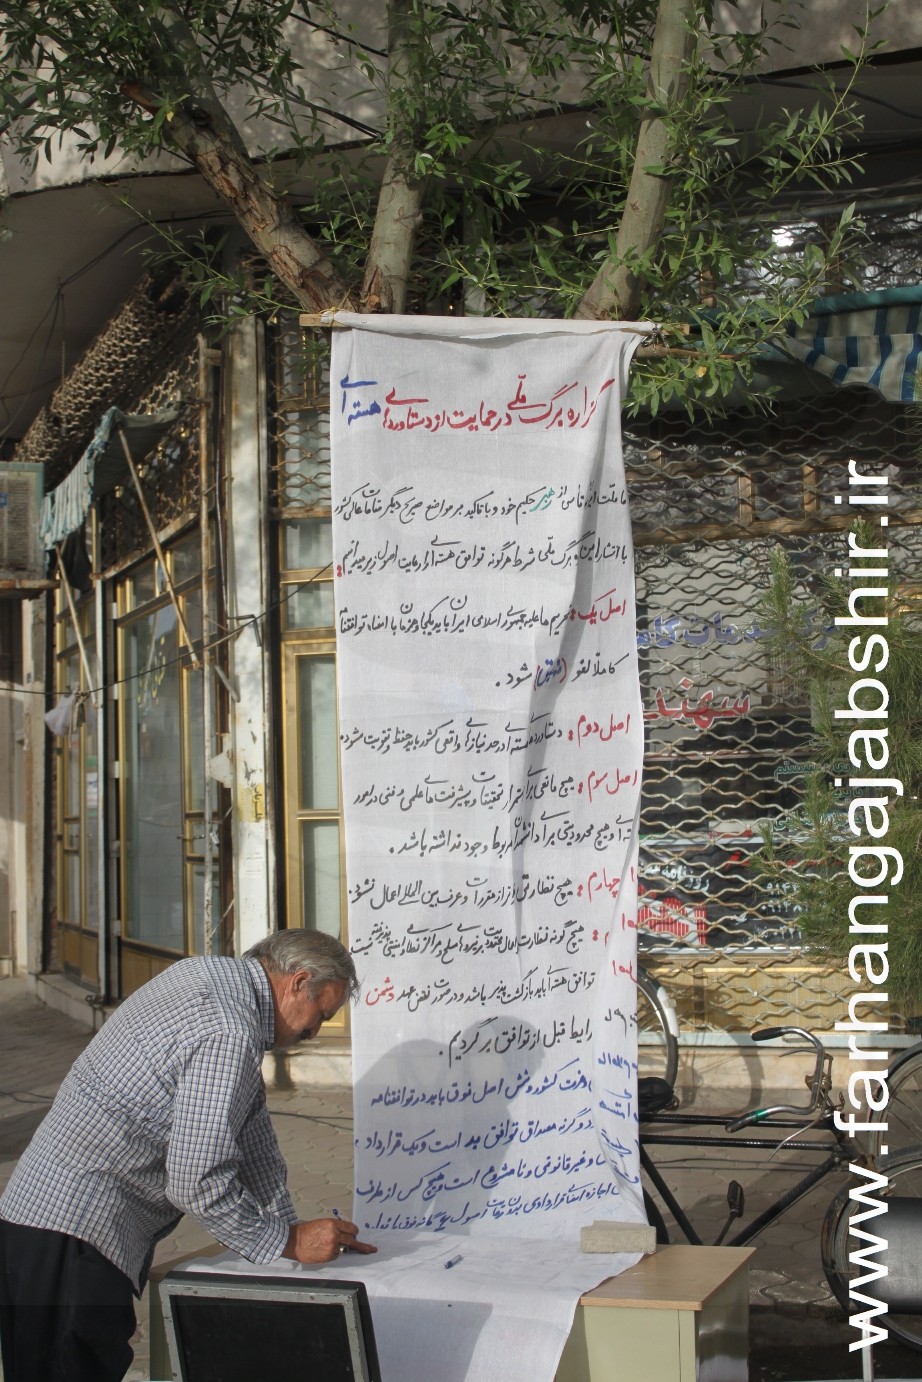 گزاره برگ ملّی در حمایت از دستاوردهای هسته ای
ما ملت ایران با تأسی از رهبر حکیم خود و با تاکید بر مواضع صریح دیگر مقامات عالی کشور
با انتشار این گزاره برگ ملّی شرط هرگونه توافق هسته ای را رعایت اصول زیر میدانیم:
اصل یک: تحریم ها علیه جمهوری اسلامی ایران باید یکجا و همزمان با امضاء توافقنامه
کاملاً لغو (نه تعلیق) شود.
اصل دوم: دستاوردهای هسته ای در حد نیازهای واقعی کشور باید حفظ و تقویت شود.
اصل سوم: هیچ مانعی برای استمرار تحقیقات و پیشرفت های علمی و فنی در امور
ته ای و هیچ محدودیتی برای دانشمندان مربوط وجود نداشته باشد.
چهارم: هیچ نظارتی فراتر از مقررات و عرف بین الملل اعمال نشود.
هیچ گونه نظارت بر نیروهای مسلح و مراکز نظامی و امنیتی پذیرفته نیست.
توافق هسته ای باید بازگشت پذیر باشد و در صورت نقض عهد دشمن
رایط قبل از توافق برگردیم.
عزت کشور و شش اصل فوق باید در توافقنامه
و گرنه مصداق توافق بد است و یک قرارداد
و غیرقانونی و نامشروع است و هیچ کس از طرف
اجازه امضای قراردادی بدون رعایت اصول شش گانه فوق ندارد.
سهند
روزنامه
www.farhangajabshir.ir